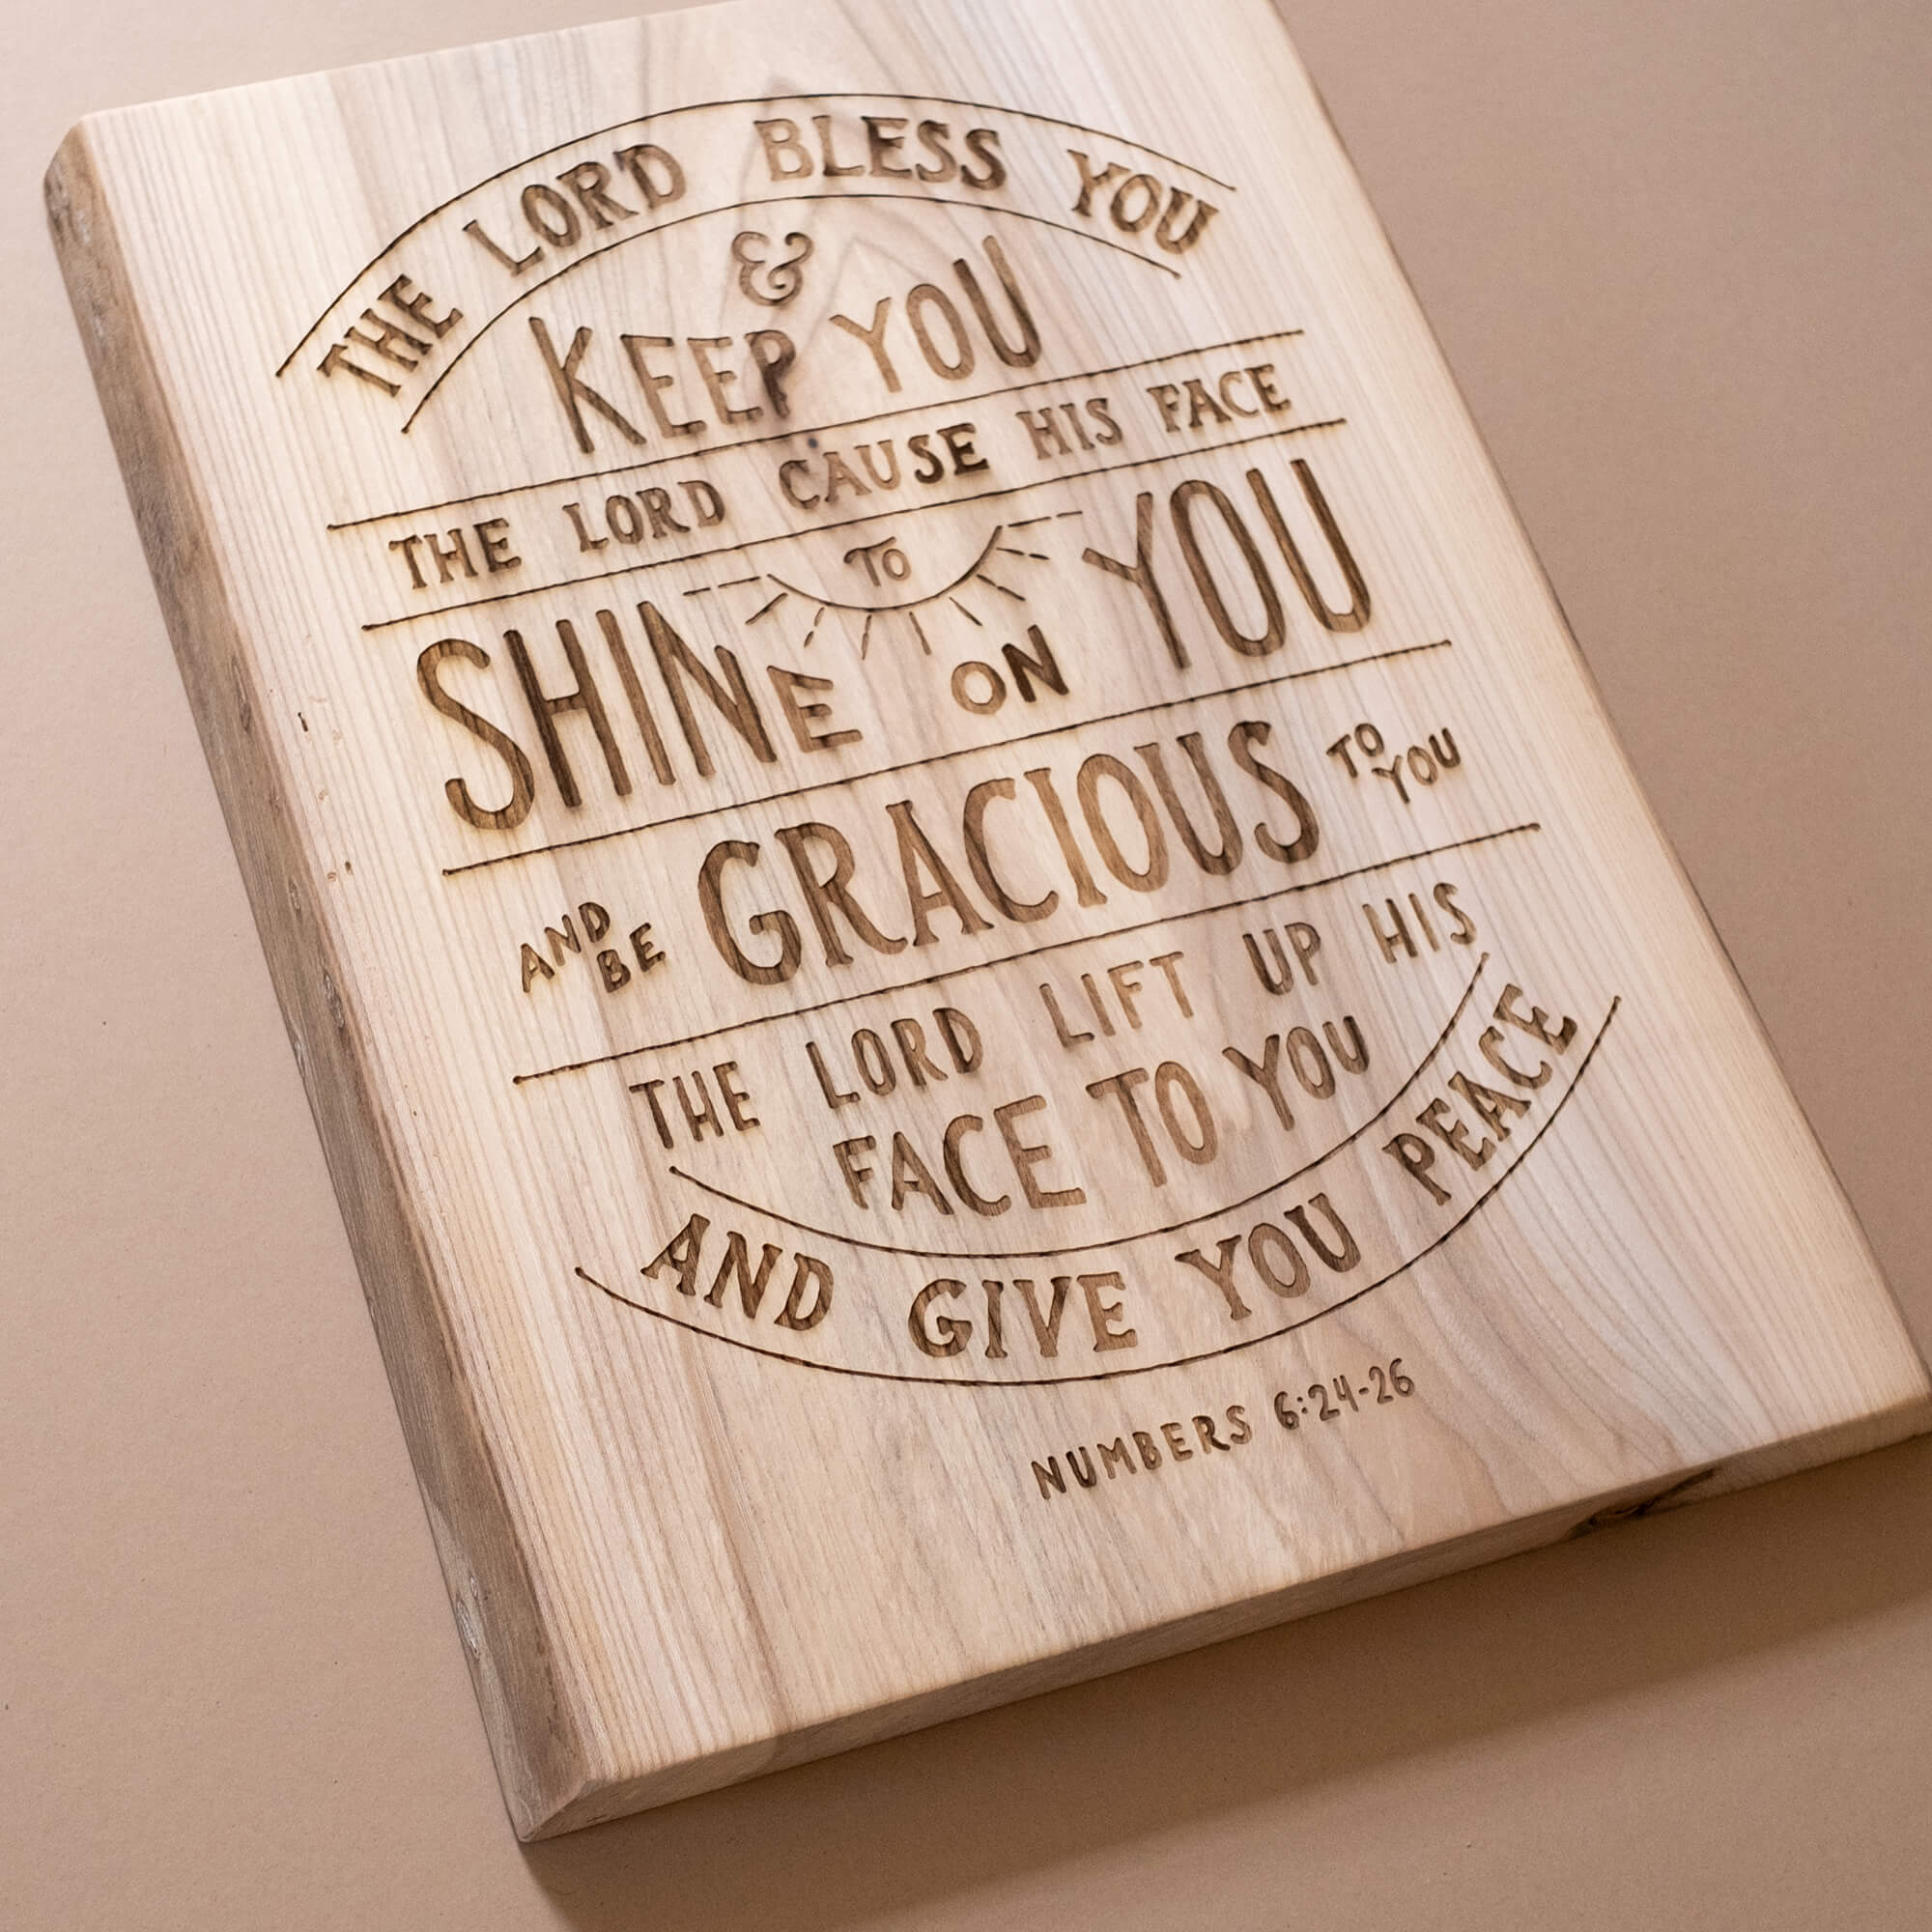 THE LORD BLESS YOU
&
KEEP YOU
THE LORD CAUSE HIS FACE
TO
SHINE ON YOU
AND BE GRACIOUS TO YOU
THE LORD LIFT UP HIS
FACE TO YOU
AND GIVE YOU PEACE
NUMBERS 6:24-26